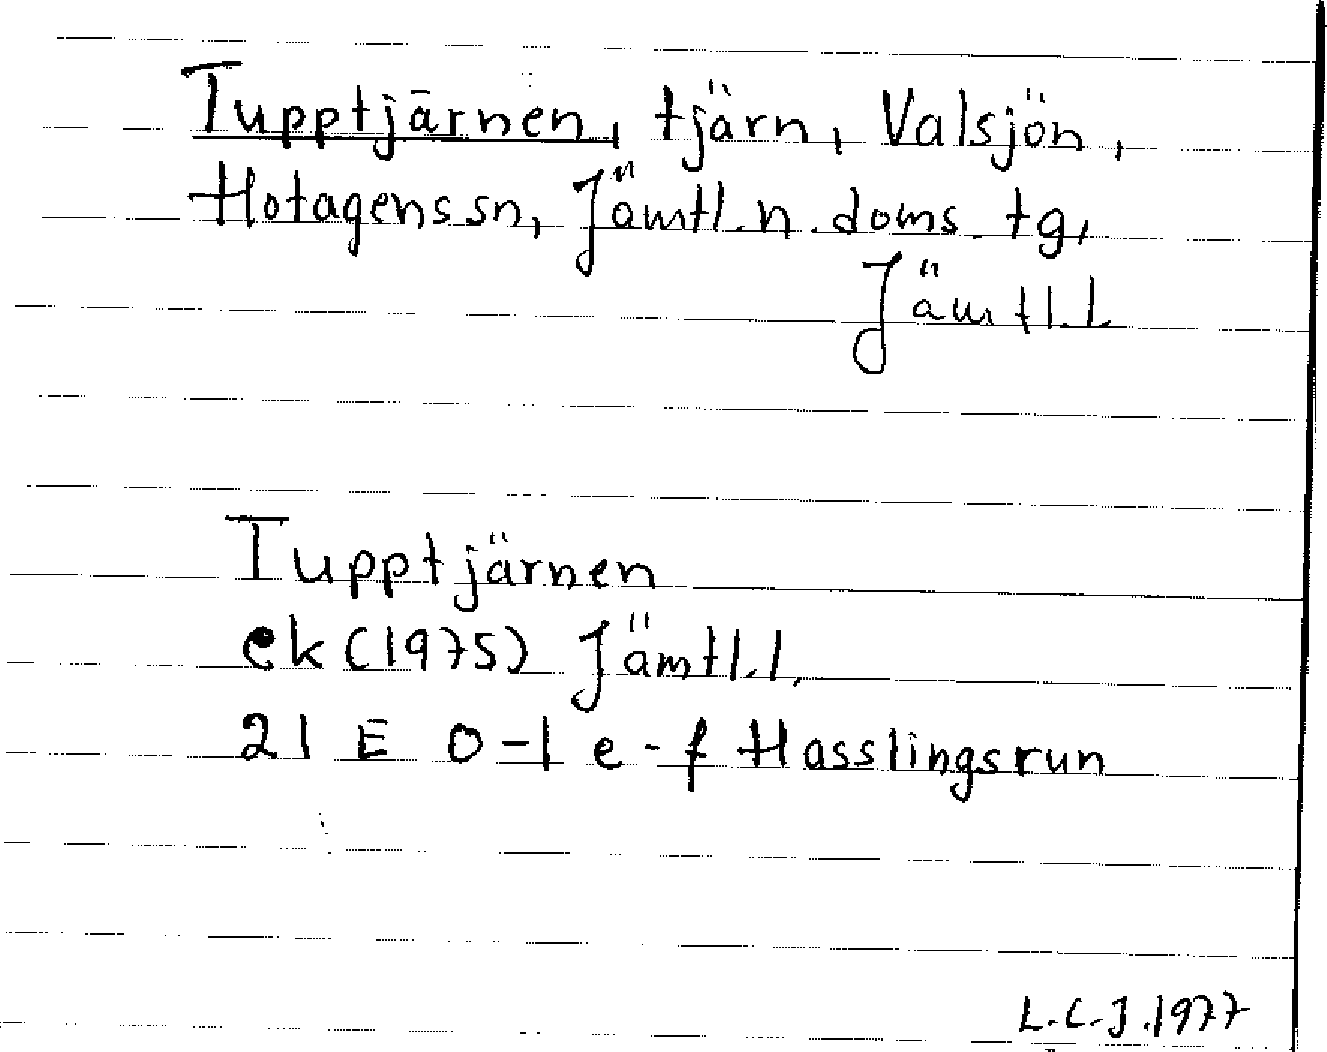 Tupptjärnen, tjärn, Valsjön,
Hotagens sn, Jämtl. n. doms. tg,
Jämtl. l
Tupptjärnen
ek (1975) Jämtl. l,
21 E 0-1 e-f Hasslingsrun
L.C.J. 1977